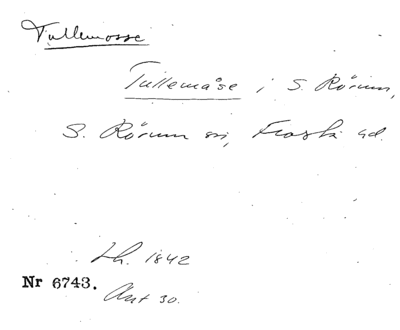 Tullemosse
Tullemåse i S. Rörum,
S. Rörum sn, Frosta hd.
Lh. 1842
Nr 6743.
Akt 30.